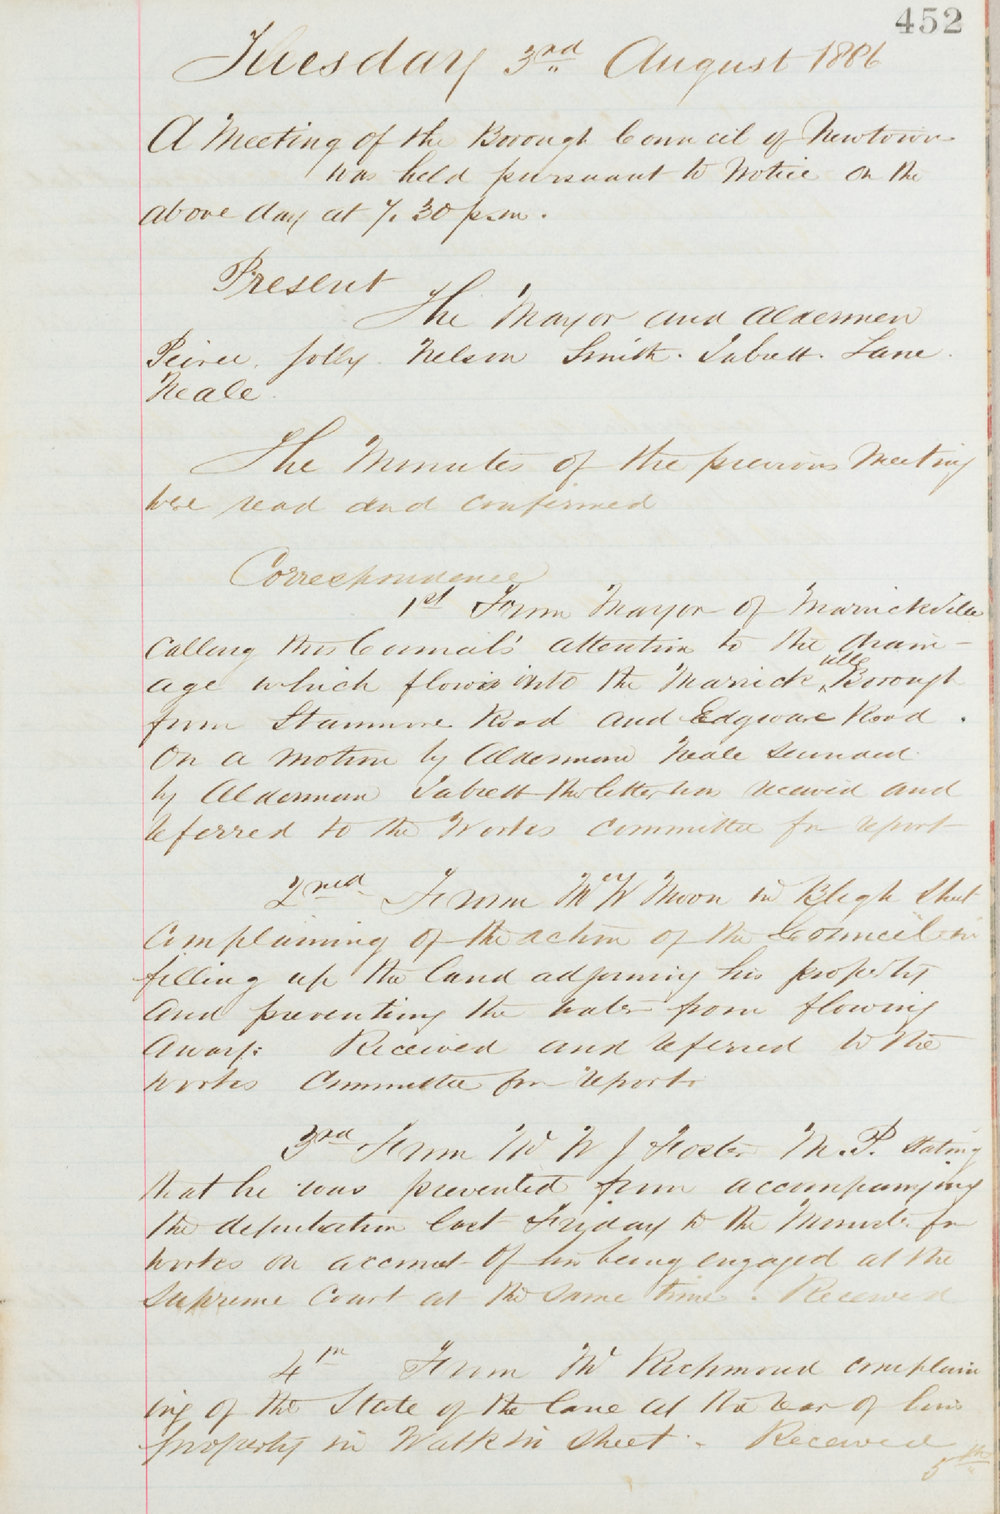 452
Tuesday 3rd August 1886
A Meeting of the Borough Council of Newtown
was held pursuant to Notice on the
above day at 7.30 p.m.
Present
The Mayor and Aldermen
Peirce. Jolly. Nelson Smith. Tabrett. Lane.
Neale.
The Minutes of the previous Meeting
were read and confirmed
Correspondence
1st From Mayor of Marrickville
Calling this Council's attention to the drain-
age which flows into the Marrickville Borough
from Stanmore Road and Edgware Road.
On a motion by Alderman Neale seconded
by Alderman Tabrett the letter was received and
referred to the Works Committee for report
2nd From Mr W Moon in Bligh Street
Complaining of the action of the Council in
filling up the land adjoining his property
and preventing the water from flowing
away: Received and referred to the
works Committee for report.
3rd From Mr W J Foster M.P. stating
that he was prevented from accompanying
the deputation last Friday to the Minister for
works on account of his being engaged at the
Supreme Court at the same time. Received
4th From Mr Richmond complain
ing of the State of the lane at the rear of his
property in Watkin Street. Received
5th